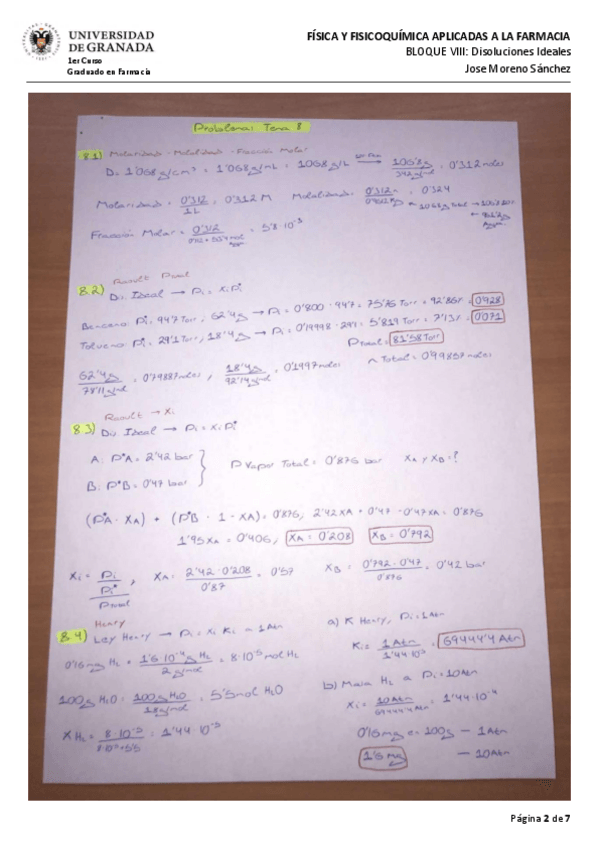 UNIVERSIDAD
DE GRANADA
1er Curso
Graduado en Farmacia
FÍSICA Y FISICOQUÍMICA APLICADAS A LA FARMACIA
BLOQUE VIII: Disoluciones Ideales
Jose Moreno Sánchez
Problemas Tema 8
8.1) Molaridad - Molalidad - Fracción Molar
D = 1'068 g/cm³ = 1'068 g/mL = 1068 g/L → 106'8 g / 342 g/mol = 0'312 moles
Molaridad = 0'312 / 1L = 0'312 M Molalidad = 0'312 = 0'324
Fracción Molar = 0'312 = 5'8 · 10⁻³
8.2) Raoult
Dis. Ideal → Pi = Xi Pi*
Benceno Pi* = 94'7 Torr, 62'4g → Pi = 0'800 · 94'7 = 75'76 Torr = 92'86% = 0'928
Tolueno Pi* = 29'1 Torr, 18'4g → Pi = 0'19998 · 29'1 = 5'819 Torr = 7'13% = 0'071
P total = 81'58 Torr
62'4g / 78'11 g/mol = 0'79887 moles , 18'4g / 92'14 g/mol = 0'1997 moles n Total = 0'99857 moles
Raoult → Xi
8.3) Dis. Ideal → Pi = Xi Pi*
A: P*A = 2'42 bar
B: P*B = 0'47 bar
P Vapor Total = 0'876 bar XA y XB = ?
(P*A · XA) + (P*B · 1 - XA) = 0'876; 2'42 XA + 0'47 - 0'47 XA = 0'876
1'95 XA = 0'406; XA = 0'208 XB = 0'792
Xi = Pi / Pi* / Ptotal , XA = 2'42 · 0'208 / 0'87 = 0'57 XB = 0'792 · 0'47 / 0'876 = 0'42 bar
Henry
8.4) Ley Henry → Pi = Xi Ki = 1 Atm
0'16 mg H₂ = 1'6 · 10⁻⁴ g H₂ / 2 g/mol = 8 · 10⁻⁵ mol H₂
100g H₂O = 100g H₂O / 18 g/mol = 5'5 mol H₂O
X H₂ = 8 · 10⁻⁵ / 8 · 10⁻⁵ + 5'5 = 1'44 · 10⁻⁵
a) K Henry, Pi = 1 Atm
Ki = 1 Atm / 1'44 · 10⁻⁵ = 69444'4 Atm
b) Masa H₂ a Pi = 10 Atm
Xi = 10 Atm / 69444'4 Atm = 1'44 · 10⁻⁴
0'16 mg en 100g — 1 Atm
1'6 mg — 10 Atm
Página 2 de 7